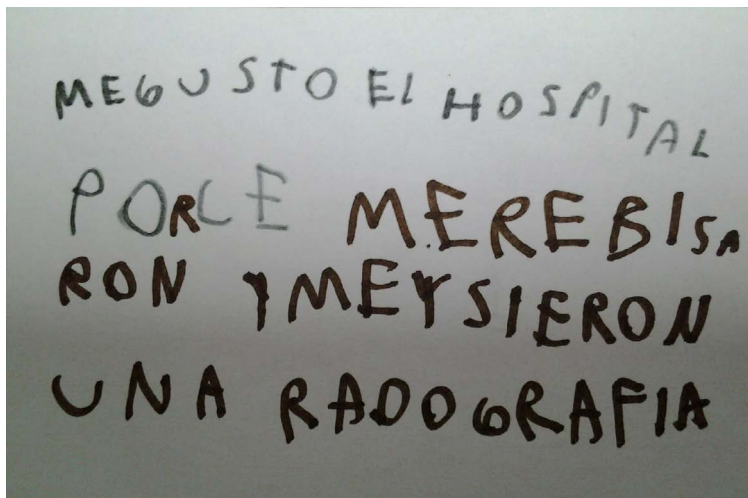 MEGUSTO EL HOSPITAL
PORCE MEREBISA
RON YMEYSIERON
UNA RADOGRAFIA